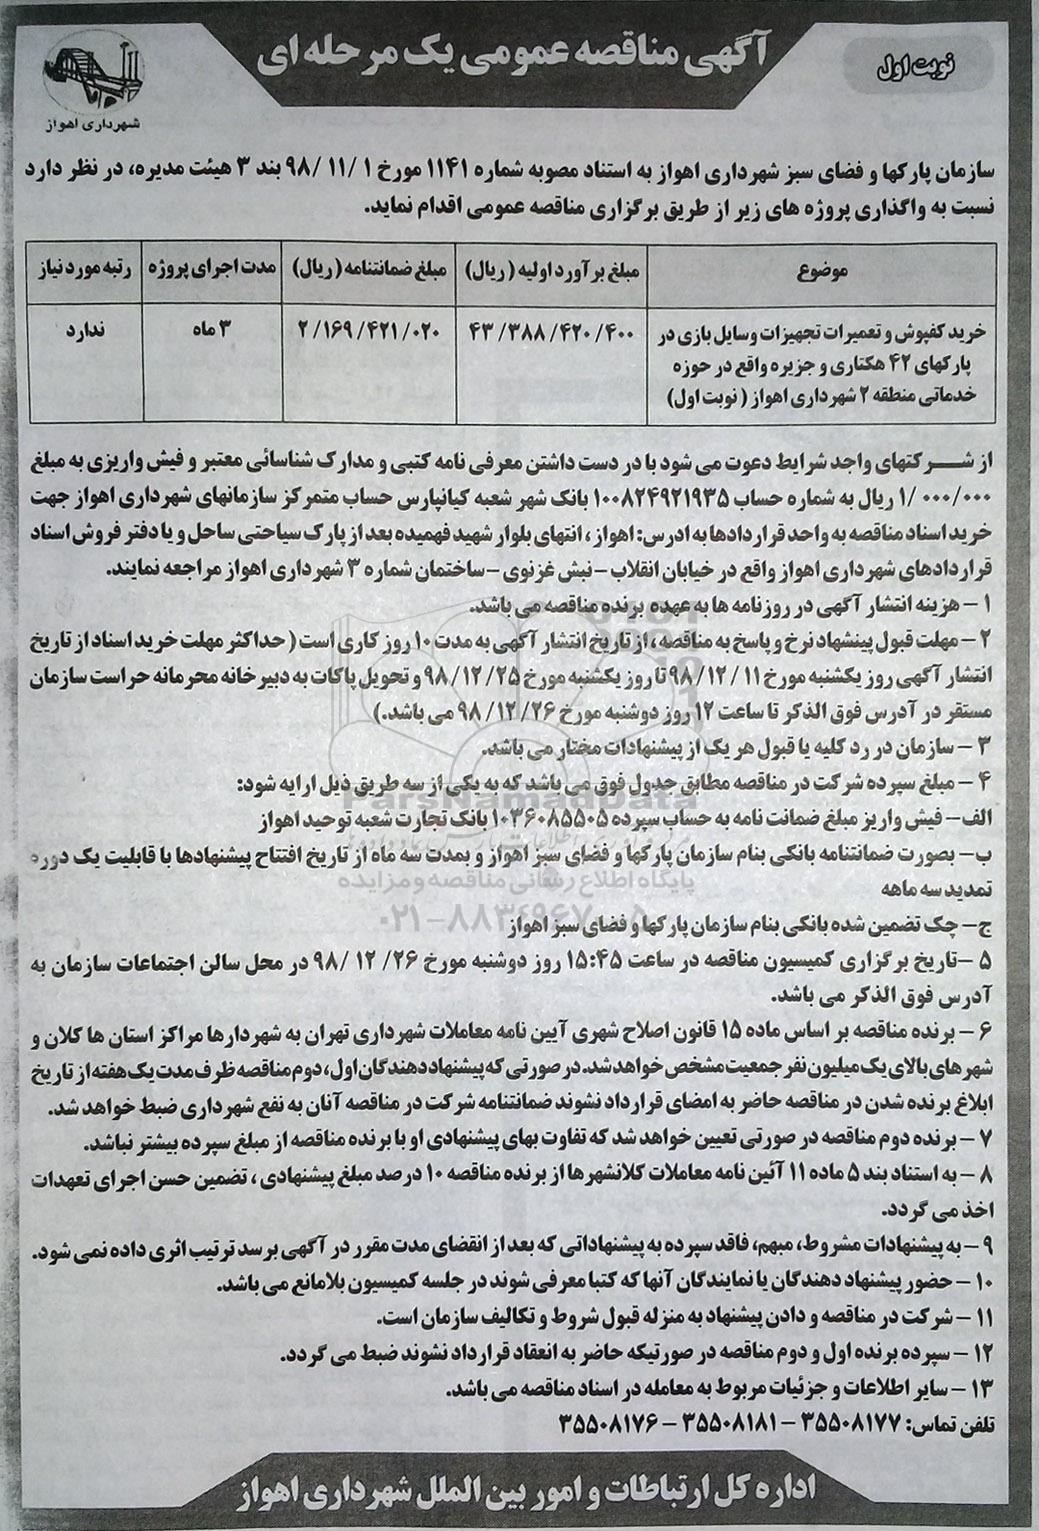 نوبت اول
آگهی مناقصه عمومی یک مرحله ای
شهرداری اهواز
سازمان پارکها و فضای سبز شهرداری اهواز به استناد مصوبه شماره ۱۱۴۱ مورخ ۱ /۱۱/ ۹۸ بند ۳ هیئت مدیره، در نظر دارد
نسبت به واگذاری پروژه های زیر از طریق برگزاری مناقصه عمومی اقدام نماید.
موضوع
مبلغ برآورد اولیه (ریال)
مبلغ ضمانتنامه (ریال)
مدت اجرای پروژه
رتبه مورد نیاز
خرید کفپوش و تعمیرات تجهیزات وسایل بازی در
پارکهای ۴۲ هکتاری و جزیره واقع در حوزه
خدماتی منطقه ۲ شهرداری اهواز (نوبت اول)
۴۳/۳۸۸/۴۲۰/۴۰۰
۲/۱۶۹/۴۲۱/۰۲۰
۳ ماه
ندارد
از شرکتهای واجد شرایط دعوت می شود با در دست داشتن معرفی نامه کتبی و مدارک شناسائی معتبر و فیش واریزی به مبلغ
۱/۰۰۰/۰۰۰ ریال به شماره حساب ۱۰۰۸۲۴۹۲۱۹۳۵ بانک شهر شعبه کیانپارس حساب متمرکز سازمانهای شهرداری اهواز جهت
خرید اسناد مناقصه به واحد قراردادها به ادرس: اهواز، انتهای بلوار شهید فهمیده بعد از پارک سیاحتی ساحل و یا دفتر فروش اسناد
قراردادهای شهرداری اهواز واقع در خیابان انقلاب – نبش غزنوی – ساختمان شماره ۳ شهرداری اهواز مراجعه نمایند.
۱ – هزینه انتشار آگهی در روزنامه ها به عهده برنده مناقصه می باشد.
۲ – مهلت قبول پیشنهاد نرخ و پاسخ به مناقصه، از تاریخ انتشار آگهی به مدت ۱۰ روز کاری است (حداکثر مهلت خرید اسناد از تاریخ
انتشار آگهی روز یکشنبه مورخ ۱۱ /۱۲/ ۹۸ تا روز یکشنبه مورخ ۲۵/ ۱۲/ ۹۸ و تحویل پاکات به دبیرخانه محرمانه حراست سازمان
مستقر در آدرس فوق الذکر تا ساعت ۱۲ روز دوشنبه مورخ ۲۶/ ۱۲/ ۹۸ می باشد.)
۳ – سازمان در رد کلیه یا قبول هر یک از پیشنهادات مختار می باشد.
۴ – مبلغ سپرده شرکت در مناقصه مطابق جدول فوق می باشد که به یکی از سه طریق ذیل ارایه شود:
ParsNamadData
الف – فیش واریز مبلغ ضمانت نامه به حساب سپرده ۱۰۳۶۰۸۵۵۰۵ بانک تجارت شعبه توحید اهواز
ب – بصورت ضمانتنامه بانکی بنام سازمان پارکها و فضای سبز اهواز و بمدت سه ماه از تاریخ افتتاح پیشنهادها با قابلیت یک دوره
پایگاه اطلاع رسانی مناقصه و مزایده
تمدید سه ماهه
ج – چک تضمین شده بانکی بنام سازمان پارکها و فضای سبز اهواز
۵ – تاریخ برگزاری کمیسیون مناقصه در ساعت ۱۵:۴۵ روز دوشنبه مورخ ۲۶/ ۱۲/ ۹۸ در محل سالن اجتماعات سازمان به
آدرس فوق الذکر می باشد.
۶ – برنده مناقصه بر اساس ماده ۱۵ قانون اصلاح شهری آیین نامه معاملات شهرداری تهران به شهردارها مراکز استان ها کلان و
شهرهای بالای یک میلیون نفر جمعیت مشخص خواهد شد. در صورتی که پیشنهاد دهندگان اول، دوم مناقصه ظرف مدت یک هفته از تاریخ
ابلاغ برنده شدن در مناقصه حاضر به امضای قرارداد نشوند ضمانتنامه شرکت در مناقصه آنان به نفع شهرداری ضبط خواهد شد.
۷ – برنده دوم مناقصه در صورتی تعیین خواهد شد که تفاوت بهای پیشنهادی او با برنده مناقصه از مبلغ سپرده بیشتر نباشد.
۸ – به استناد بند ۵ ماده ۱۱ آئین نامه معاملات کلانشهرها از برنده مناقصه ۱۰ درصد مبلغ پیشنهادی، تضمین حسن اجرای تعهدات
اخذ می گردد.
۹ – به پیشنهادات مشروط، مبهم، فاقد سپرده به پیشنهاداتی که بعد از انقضای مدت مقرر در آگهی برسد ترتیب اثری داده نمی شود.
۱۰ – حضور پیشنهاد دهندگان یا نمایندگان آنها که کتبا معرفی شوند در جلسه کمیسیون بلامانع می باشد.
۱۱ – شرکت در مناقصه و دادن پیشنهاد به منزله قبول شروط و تکالیف سازمان است.
۱۲ – سپرده برنده اول و دوم مناقصه در صورتیکه حاضر به انعقاد قرارداد نشوند ضبط می گردد.
۱۳ – سایر اطلاعات و جزئیات مربوط به معامله در اسناد مناقصه می باشد.
تلفن تماس: ۳۵۵۰۸۱۷۷ – ۳۵۵۰۸۱۸۱ – ۳۵۵۰۸۱۷۶
اداره کل ارتباطات و امور بین الملل شهرداری اهواز